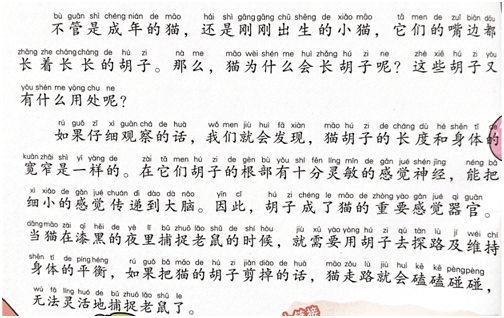 bù guǎn shì chéng nián de māo hái shì gāng gāng chū shēng de xiǎo māo tā men de zuǐ biān dōu
不管是成年的猫，还是刚刚出生的小猫，它们的嘴边都
zhǎng zhe cháng cháng de hú zi nà me māo wèi shén me huì zhǎng hú zi ne zhè xiē hú zi yòu
长着长长的胡子。那么，猫为什么会长胡子呢？这些胡子又
yǒu shén me yòng chu ne
有什么用处呢？
rú guǒ zǐ xì guān chá de huà wǒ men jiù huì fā xiàn māo hú zi de cháng dù hé shēn tǐ de
如果仔细观察的话，我们就会发现，猫胡子的长度和身体的
kuān zhǎi shì yí yàng de zài tā men hú zi de gēn bù yǒu shí fēn líng mǐn de gǎn jué shén jīng néng bǎ
宽窄是一样的。在它们胡子的根部有十分灵敏的感觉神经，能把
xì xiǎo de gǎn jué chuán dì dào dà nǎo yīn cǐ hú zi chéng le māo de zhòng yào gǎn jué qì guān
细小的感觉传递到大脑。因此，胡子成了猫的重要感觉器官。
dāng māo zài qī hēi de yè lǐ bǔ zhuō lǎo shǔ de shí hòu jiù xū yào yòng hú zi qù tàn lù jí wéi chí
当猫在漆黑的夜里捕捉老鼠的时候，就需要用胡子去探路及维持
shēn tǐ de píng héng rú guǒ bǎ māo de hú zi jiǎn diào de huà māo zǒu lù jiù huì kē kē pèng pèng
身体的平衡，如果把猫的胡子剪掉的话，猫走路就会磕磕碰碰，
wú fǎ líng huó de bǔ zhuō lǎo shǔ le
无法灵活地捕捉老鼠了。